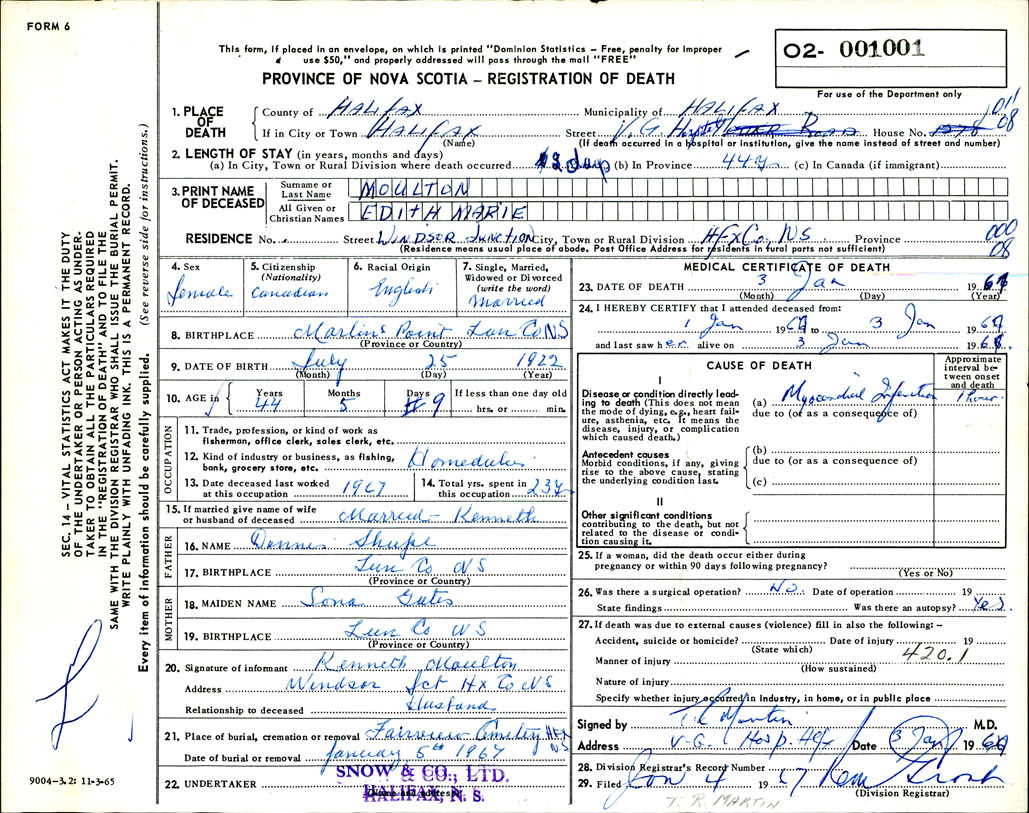 FORM 6
This form, if placed in an envelope, on which is printed "Dominion Statistics – Free, penalty for improper
use $50," and properly addressed will pass through the mail "FREE"
PROVINCE OF NOVA SCOTIA – REGISTRATION OF DEATH
02- 001001
For use of the Department only
011
08
1. PLACE OF DEATH
County of HALIFAX Municipality of HALIFAX
If in City or Town HALIFAX Street V.G. Hospital ROAD House No.
(Name) (If death occurred in a hospital or institution, give the name instead of street and number)
2. LENGTH OF STAY (in years, months and days)
(a) In City, Town or Rural Division where death occurred 2 days (b) In Province 44y (c) In Canada (if immigrant)
3. PRINT NAME OF DECEASED
Surname or Last Name MOULTON
All Given or Christian Names EDITH MARIE
RESIDENCE No. Street WINDSOR JUNCTION City, Town or Rural Division HFX Co., NS Province
(Residence means usual place of abode. Post Office Address for residents in rural parts not sufficient)
000
08
4. Sex Female
5. Citizenship (Nationality) Canadian
6. Racial Origin English
7. Single, Married, Widowed or Divorced (write the word) Married
8. BIRTHPLACE Martins Point Lun Co NS
(Province or Country)
9. DATE OF BIRTH July 25 1922
(Month) (Day) (Year)
10. AGE in Years 44 Months 5 Days 9 If less than one day old hrs. or min.
OCCUPATION
11. Trade, profession, or kind of work as fisherman, office clerk, sales clerk, etc.
12. Kind of industry or business, as fishing, bank, grocery store, etc. Homeduties
13. Date deceased last worked at this occupation 1967
14. Total yrs. spent in this occupation 23y
15. If married give name of wife or husband of deceased Married – Kenneth
FATHER
16. NAME Dennis Shupe
17. BIRTHPLACE Lun Co NS
(Province or Country)
MOTHER
18. MAIDEN NAME Gates
19. BIRTHPLACE Lun Co NS
(Province or Country)
20. Signature of informant Kenneth Moulton
Address Windsor Jct Hx Co NS
Relationship to deceased Husband
21. Place of burial, cremation or removal Fairview Cemetery HFX NS
Date of burial or removal January 5th 1967
22. UNDERTAKER SNOW & CO., LTD.
HALIFAX, N. S.
(Name and address)
MEDICAL CERTIFICATE OF DEATH
23. DATE OF DEATH 3 Jan 1967
(Month) (Day) (Year)
24. I HEREBY CERTIFY that I attended deceased from:
1 Jan 1967 to 3 Jan 1967
and last saw her alive on 3 Jan 1967.
CAUSE OF DEATH
Approximate interval between onset and death
I
Disease or condition directly leading to death (This does not mean the mode of dying, e.g., heart failure, asthenia, etc. It means the disease, injury, or complication which caused death.)
(a) Myocardial Infarction 1 hour
due to (or as a consequence of)
Antecedent causes
Morbid conditions, if any, giving rise to the above cause, stating the underlying condition last.
(b)
due to (or as a consequence of)
(c)
II
Other significant conditions
contributing to the death, but not related to the disease or condition causing it.
25. If a woman, did the death occur either during pregnancy or within 90 days following pregnancy?
(Yes or No)
26. Was there a surgical operation? No. Date of operation 19
State findings Was there an autopsy? Yes.
27. If death was due to external causes (violence) fill in also the following: –
Accident, suicide or homicide? Date of injury 19
(State which)
420.1
Manner of injury
(How sustained)
Nature of injury
Specify whether injury occurred in industry, in home, or in public place
Signed by T R Martin M.D.
Address V.G. Hosp. Hfx Date 3 Jan 1967
28. Division Registrar's Record Number
29. Filed Jan 4 1967
(Division Registrar)
T. R. MARTIN
SEC. 14 – VITAL STATISTICS ACT MAKES IT THE DUTY
OF THE UNDERTAKER OR PERSON ACTING AS UNDER-
TAKER TO OBTAIN ALL THE PARTICULARS REQUIRED
IN THE "REGISTRATION OF DEATH" AND TO FILE THE
SAME WITH THE DIVISION REGISTRAR WHO SHALL ISSUE THE BURIAL PERMIT.
WRITE PLAINLY WITH UNFADING INK. THIS IS A PERMANENT RECORD.
Every item of information should be carefully supplied. (See reverse side for instructions.)
9004–3.2: 11-3-65